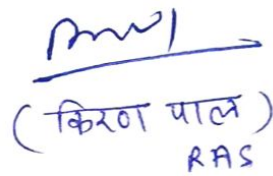 (किरण पाल)
RAS